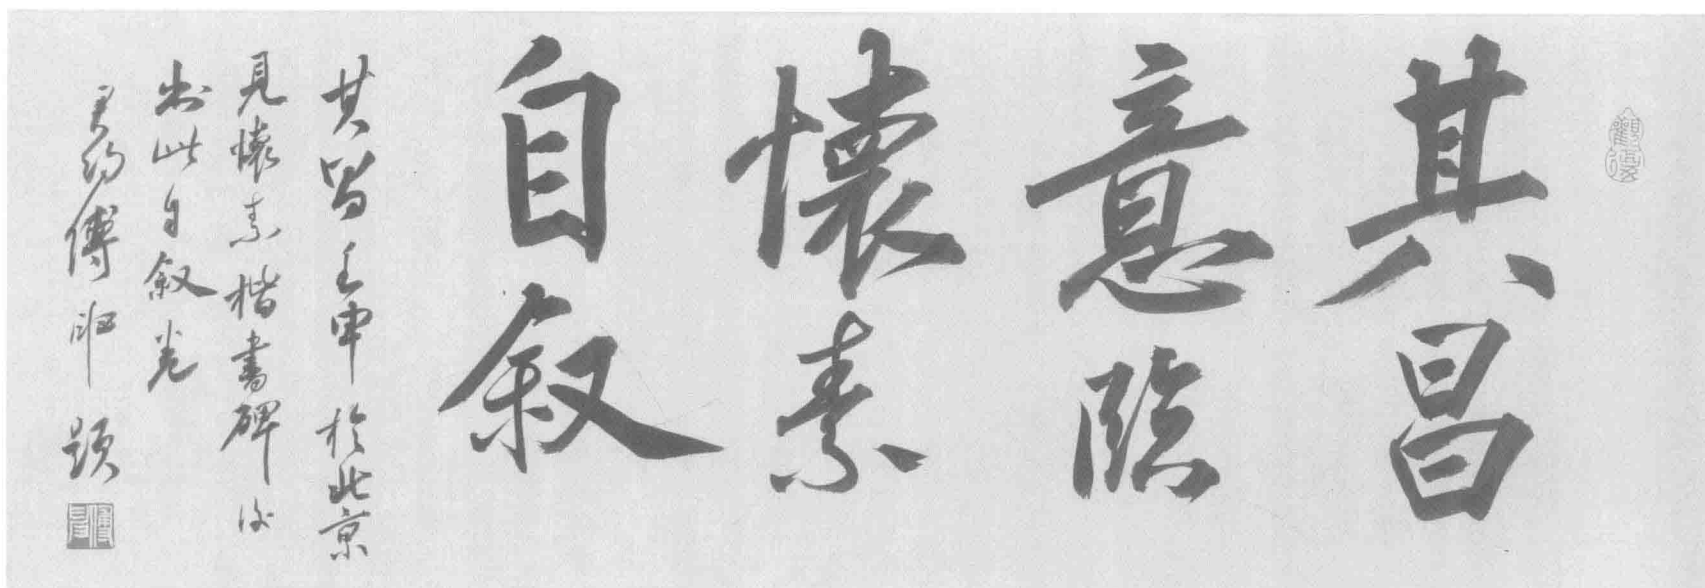 其昌
意臨
懷素
自叙
其昌壬申於北京
見懷素楷書碑後
出此自叙卷
傅申題